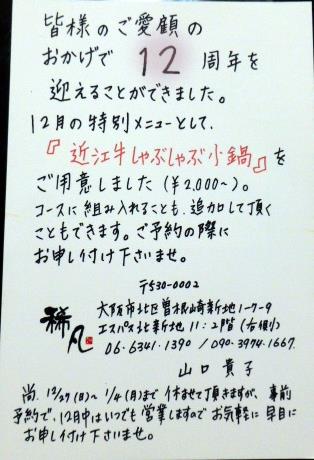 皆様のご愛顧の
おかげで 12 周年を
迎えることができました。
12月の特別メニューとして、
『近江牛しゃぶしゃぶ小鍋』を
ご用意しました(¥2,000~)。
コースに組み入れることも、追加して頂く
こともできます。ご予約の際に
お申し付け下さいませ。
〒530-0002
大阪市北区曽根崎新地1-7-9
エスパス北新地11:2階(右側)
稀凡
06・6341・1390 / 090・3974・1667
山口貴子
尚、12/27(日)~1/4(月)まで休ませて頂きますが、事前
予約で、12月中はいつでも営業しますのでお気軽に早目に
お申し付け下さいませ。